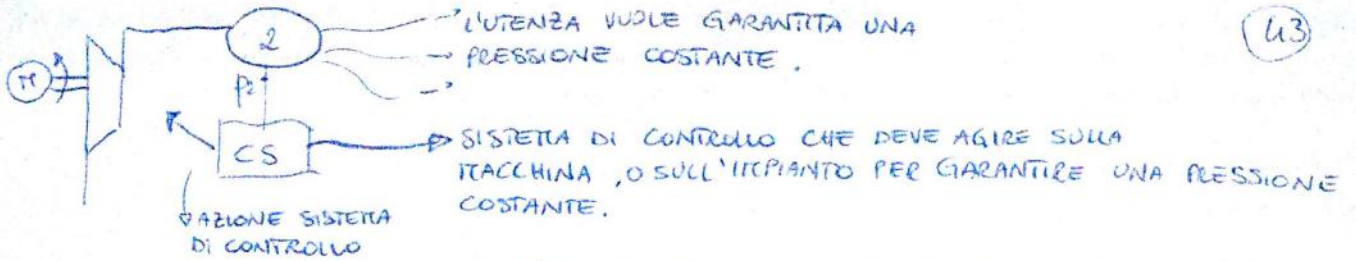 L'UTENZA VUOLE GARANTITA UNA
PRESSIONE COSTANTE.
43
M
2
P2
CS
SISTEMA DI CONTROLLO CHE DEVE AGIRE SULLA
MACCHINA, O SULL'IMPIANTO PER GARANTIRE UNA PRESSIONE
COSTANTE.
AZIONE SISTEMA
DI CONTROLLO